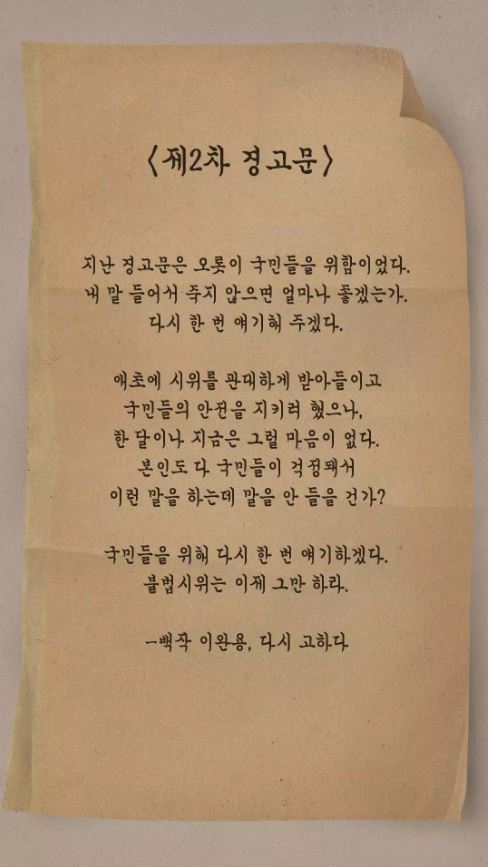 <제2차 경고문>
지난 경고문은 오롯이 국민들을 위함이었다.
내 말 들어서 죽지 않으면 얼마나 좋겠는가.
다시 한 번 얘기해 주겠다.
애초에 시위를 관대하게 받아들이고
국민들의 안전을 지키려 했으나,
한 달이나 지금은 그럴 마음이 없다.
본인도 다 국민들이 걱정돼서
이런 말을 하는데 말을 안 들을 건가?
국민들을 위해 다시 한 번 얘기하겠다.
불법시위는 이제 그만 하라.
-백작 이완용, 다시 고하다